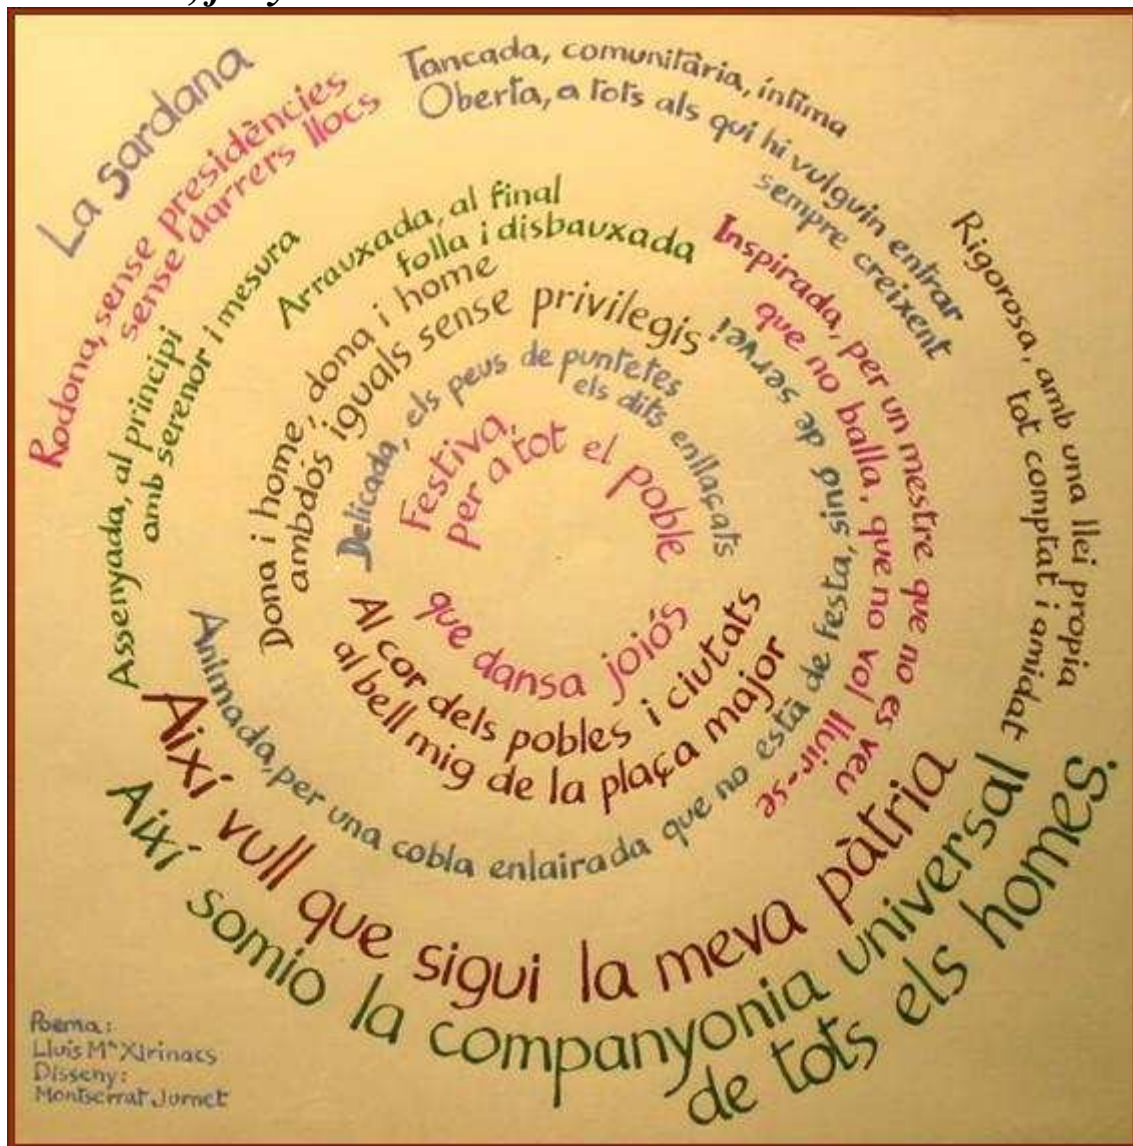 La sardana
Rodona, sense presidències
sense darrers llocs
Tancada, comunitària, íntima
Oberta, a tots als qui hi vulguin entrar
sempre creixent
Rigorosa, amb una llei propia
tot comptat i amidat
Assenyada, al principi
amb serenor i mesura
Arrauxada, al final
folla i disbauxada
Inspirada, per un mestre que no es veu
que no balla, que no vol lluir-se
Animada, per una cobla enlairada que no està de festa, sinó de servei
Dona i home, dona i home
ambdós iguals sense privilegis
Delicada, els peus de puntetes
els dits enllaçats
Festiva,
per a tot el poble
que dansa joiós
Al cor dels pobles i ciutats
al bell mig de la plaça major
Així vull que sigui la meva pàtria
Així somio la companyonia universal
de tots els homes.
Poema:
Lluís Mª Xirinacs
Disseny:
Montserrat Jornet